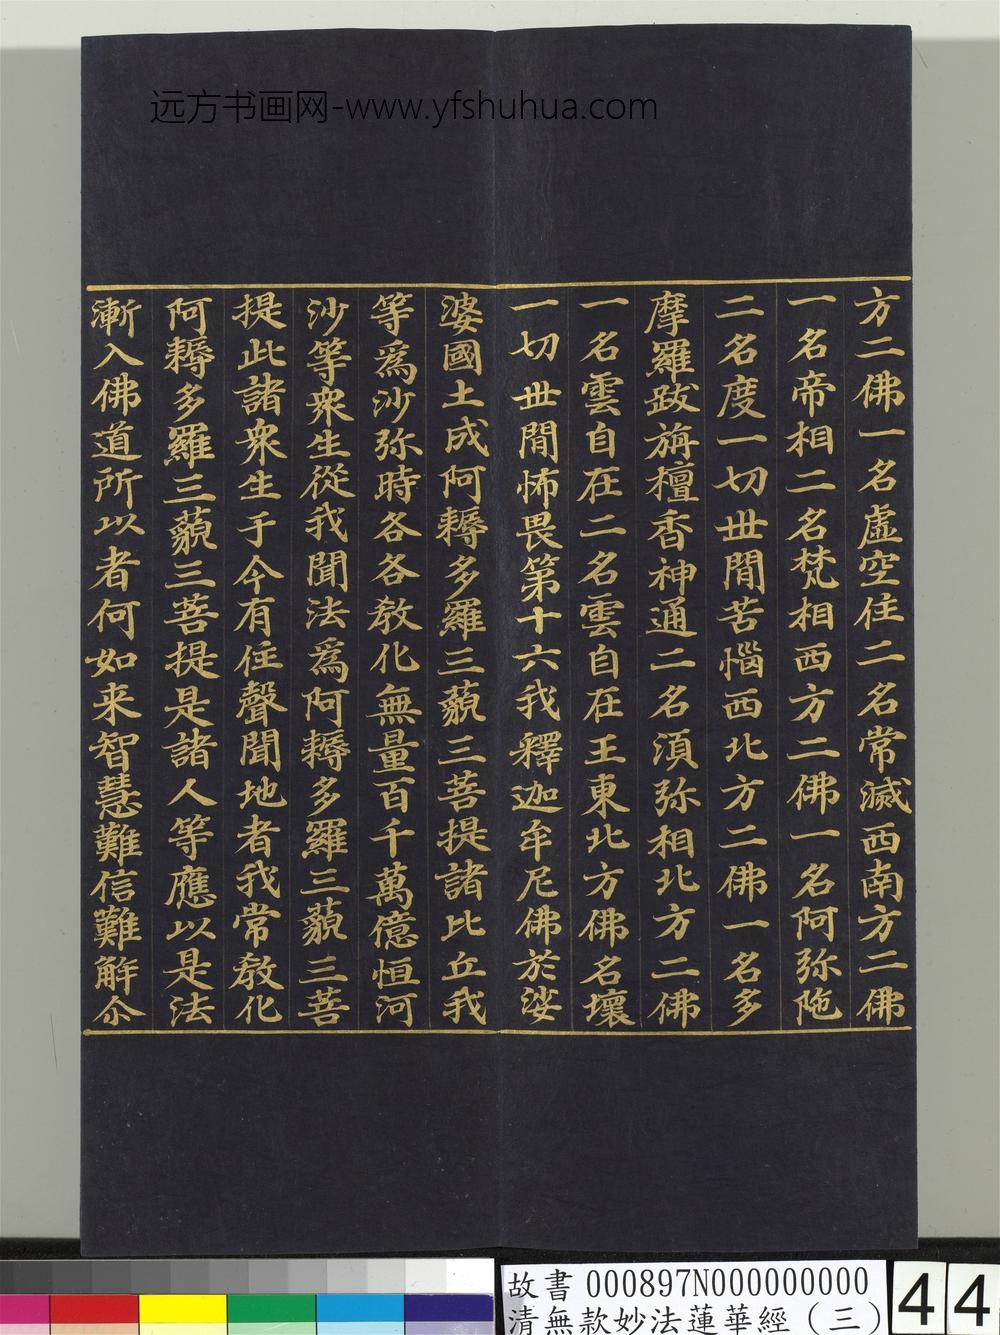 远方书画网-www.yfshuhua.com
方二佛一名虛空住二名常滅西南方二佛
一名帝相二名梵相西方二佛一名阿弥陁
二名度一切世間苦惱西北方二佛一名多
摩羅跋旃檀香神通二名湏弥相北方二佛
一名雲自在二名雲自在王東北方佛名壞
一切世間怖畏第十六我釋迦牟尼佛於娑
婆國土成阿耨多羅三藐三菩提諸比丘我
等爲沙弥時各各教化無量百千萬億恒河
沙等衆生從我聞法爲阿耨多羅三藐三菩
提此諸衆生于今有住聲聞地者我常教化
阿耨多羅三藐三菩提是諸人等應以是法
漸入佛道所以者何如来智慧難信難解尒
故書 000897N000000000
清無款妙法蓮華經(三)
44